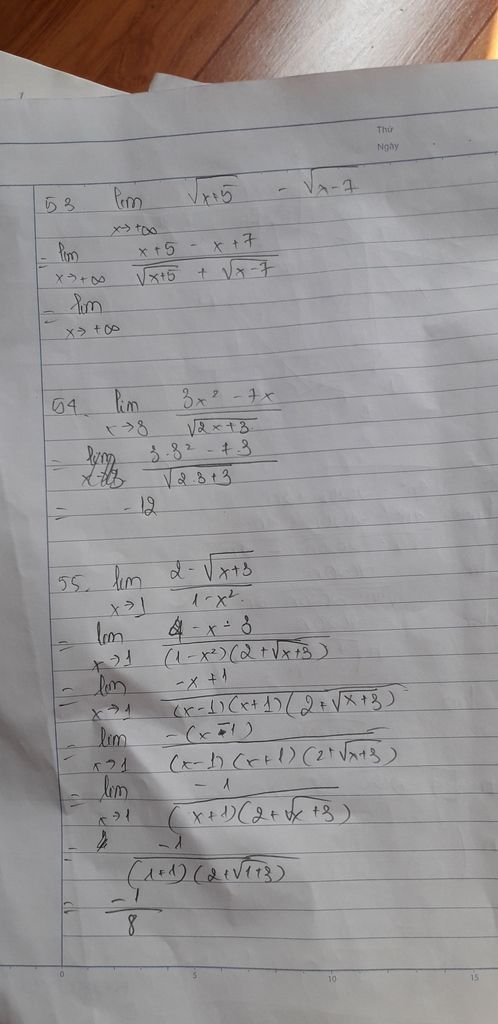 Thứ
Ngày
53 lim x→+∞ √(x+5) - √(x-7)
= lim x→+∞ (x+5 - x+7)/(√(x+5) + √(x-7))
= lim x→+∞
54. lim x→3 (3x² - 7x)/√(2x+3)
= (3.3² - 7.3)/√(2.3+3)
= -12
55. lim x→1 (2 - √(x+3))/(1-x²)
= lim x→1 (4 - x - 3)/((1-x²)(2+√(x+3)))
= lim x→1 (-x+1)/((x-1)(x+1)(2+√(x+3)))
= lim x→1 (-(x-1))/((x-1)(x+1)(2+√(x+3)))
= lim x→1 (-1)/((x+1)(2+√(x+3)))
= (-1)/((1+1)(2+√(1+3)))
= (-1)/8
0 5 10 15